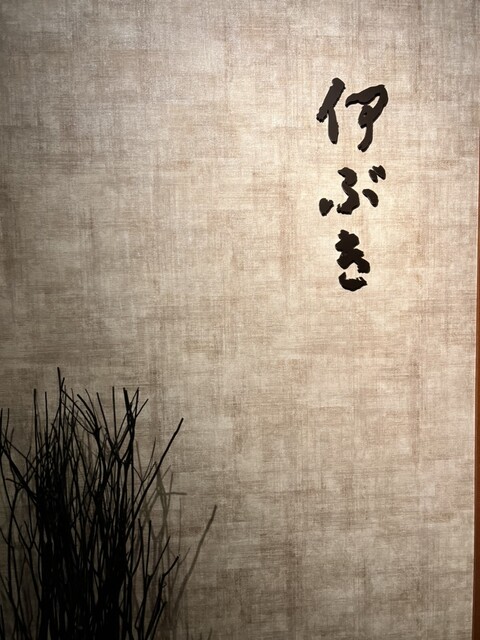 伊ぶき